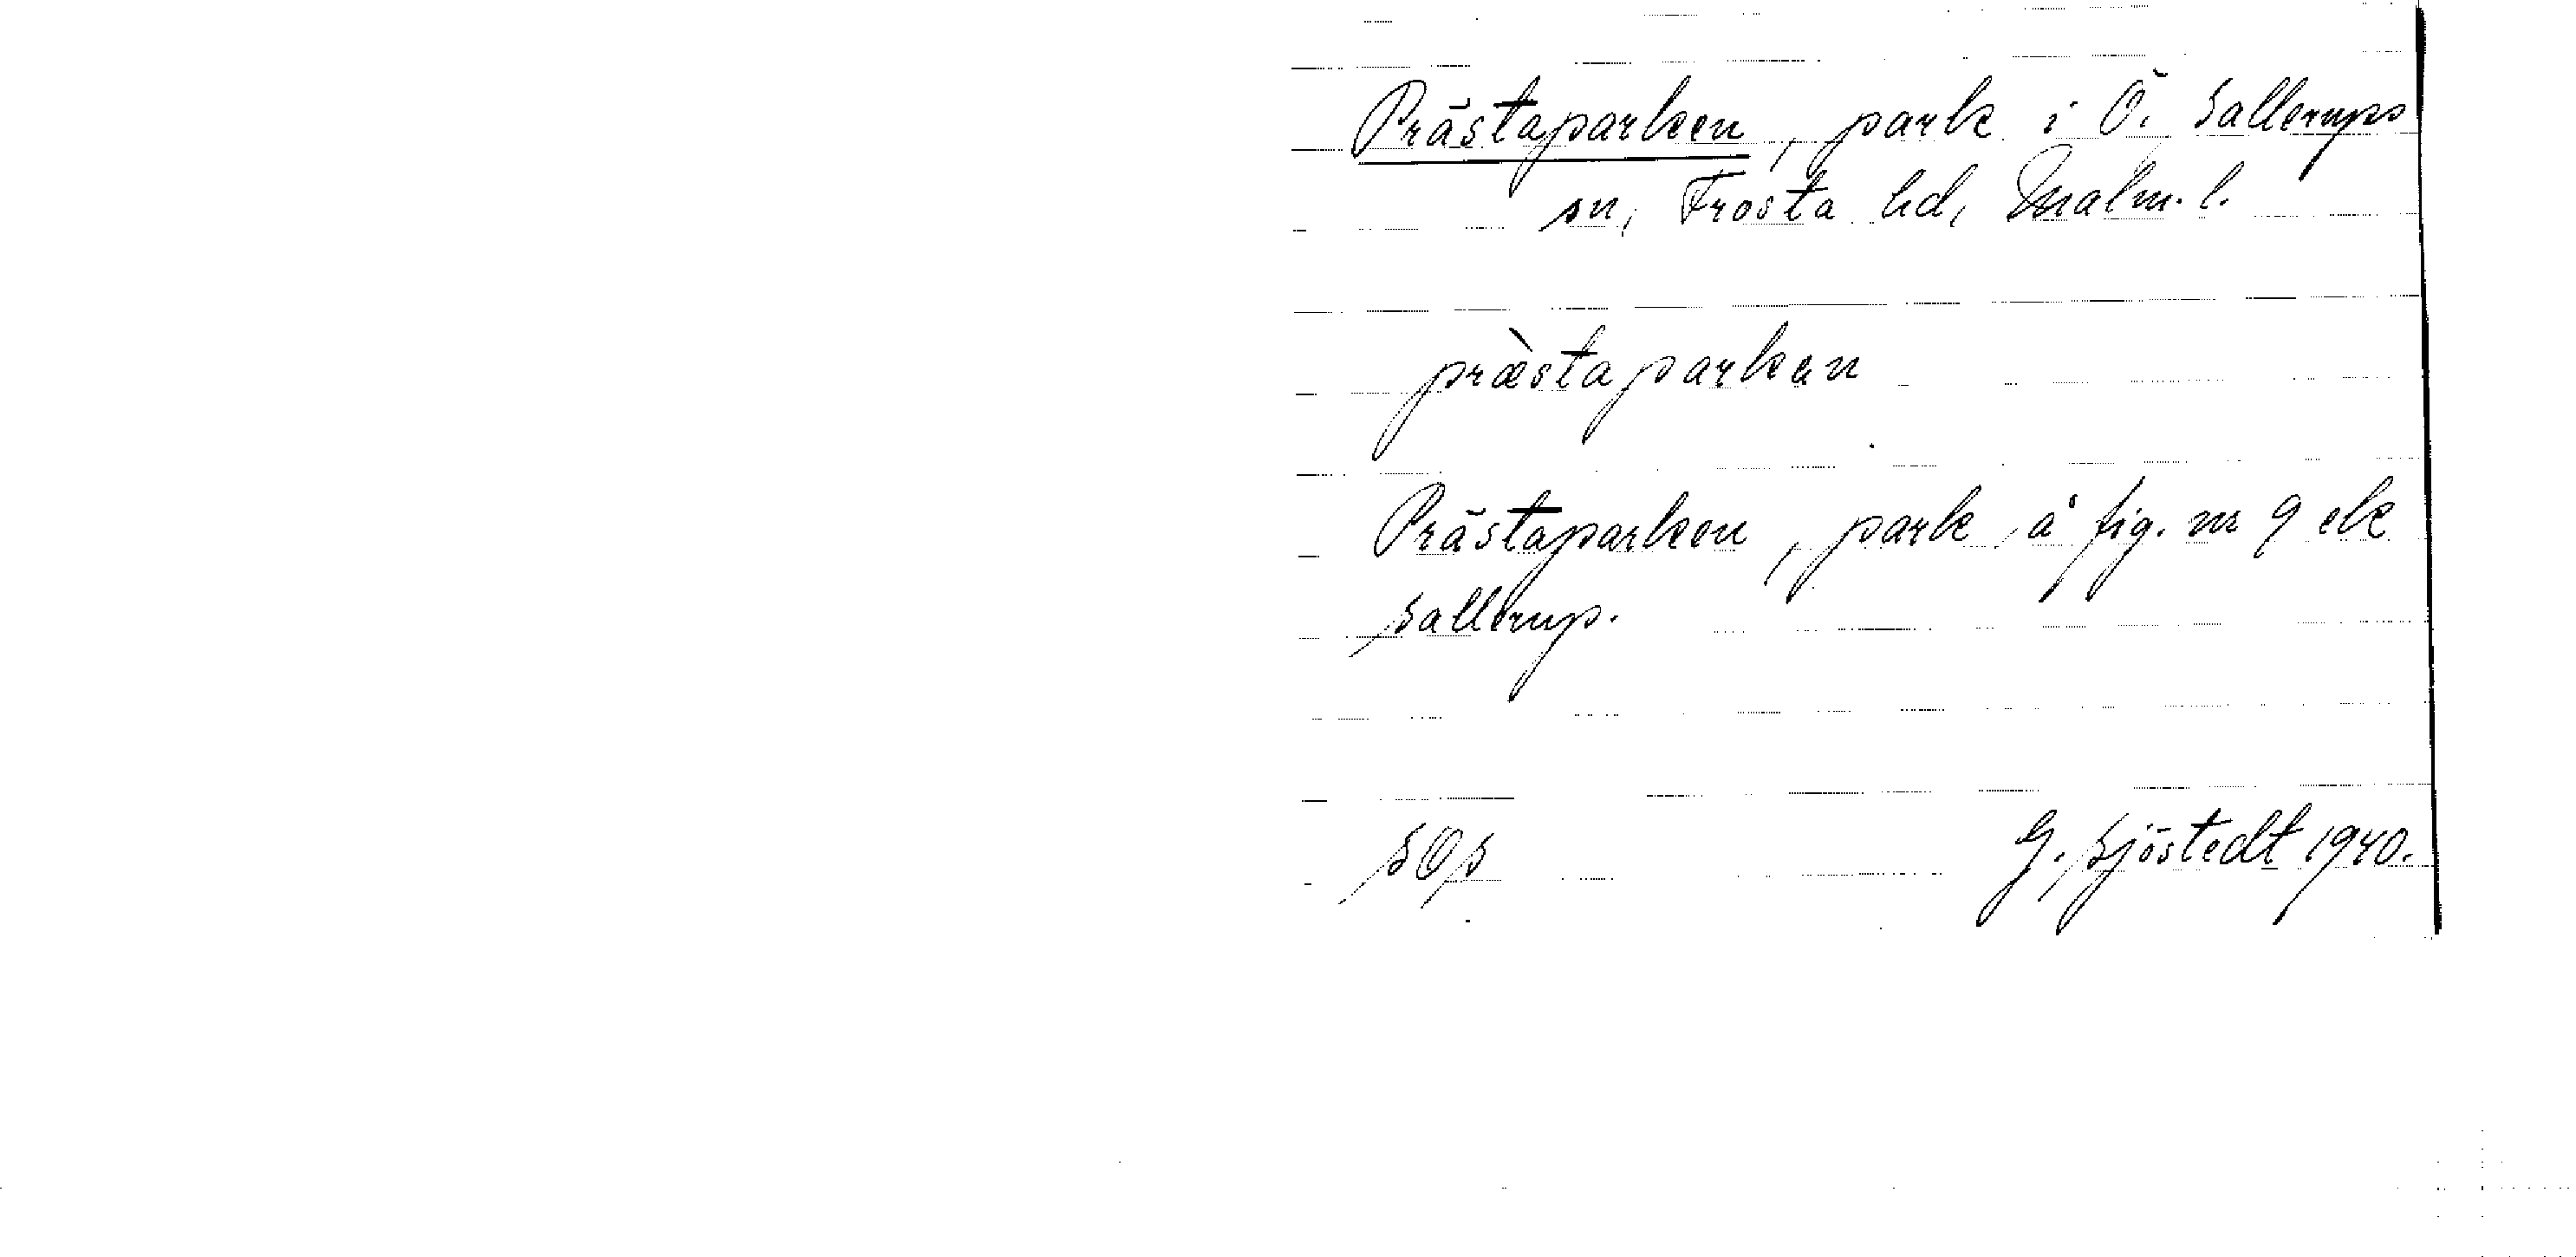 Prästaparken, park i Ö. Sallerups
sn, Frosta hd, Malm. l.
præ̀staparkən
Prästaparken, park å fig. nr 9 ek
Sallerup.
SOS
G. Sjöstedt 1940.